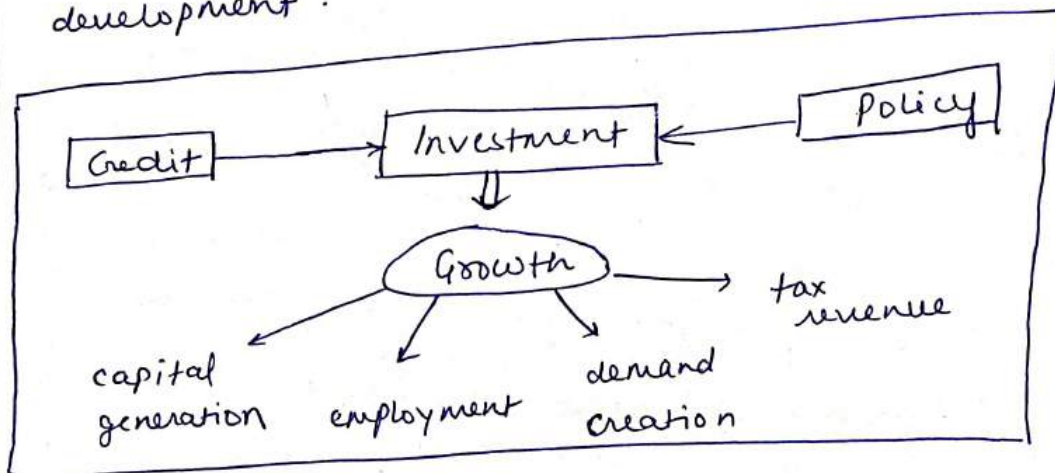 development.
Credit
Investment
Policy
Growth
tax
revenue
capital
generation
employment
demand
creation